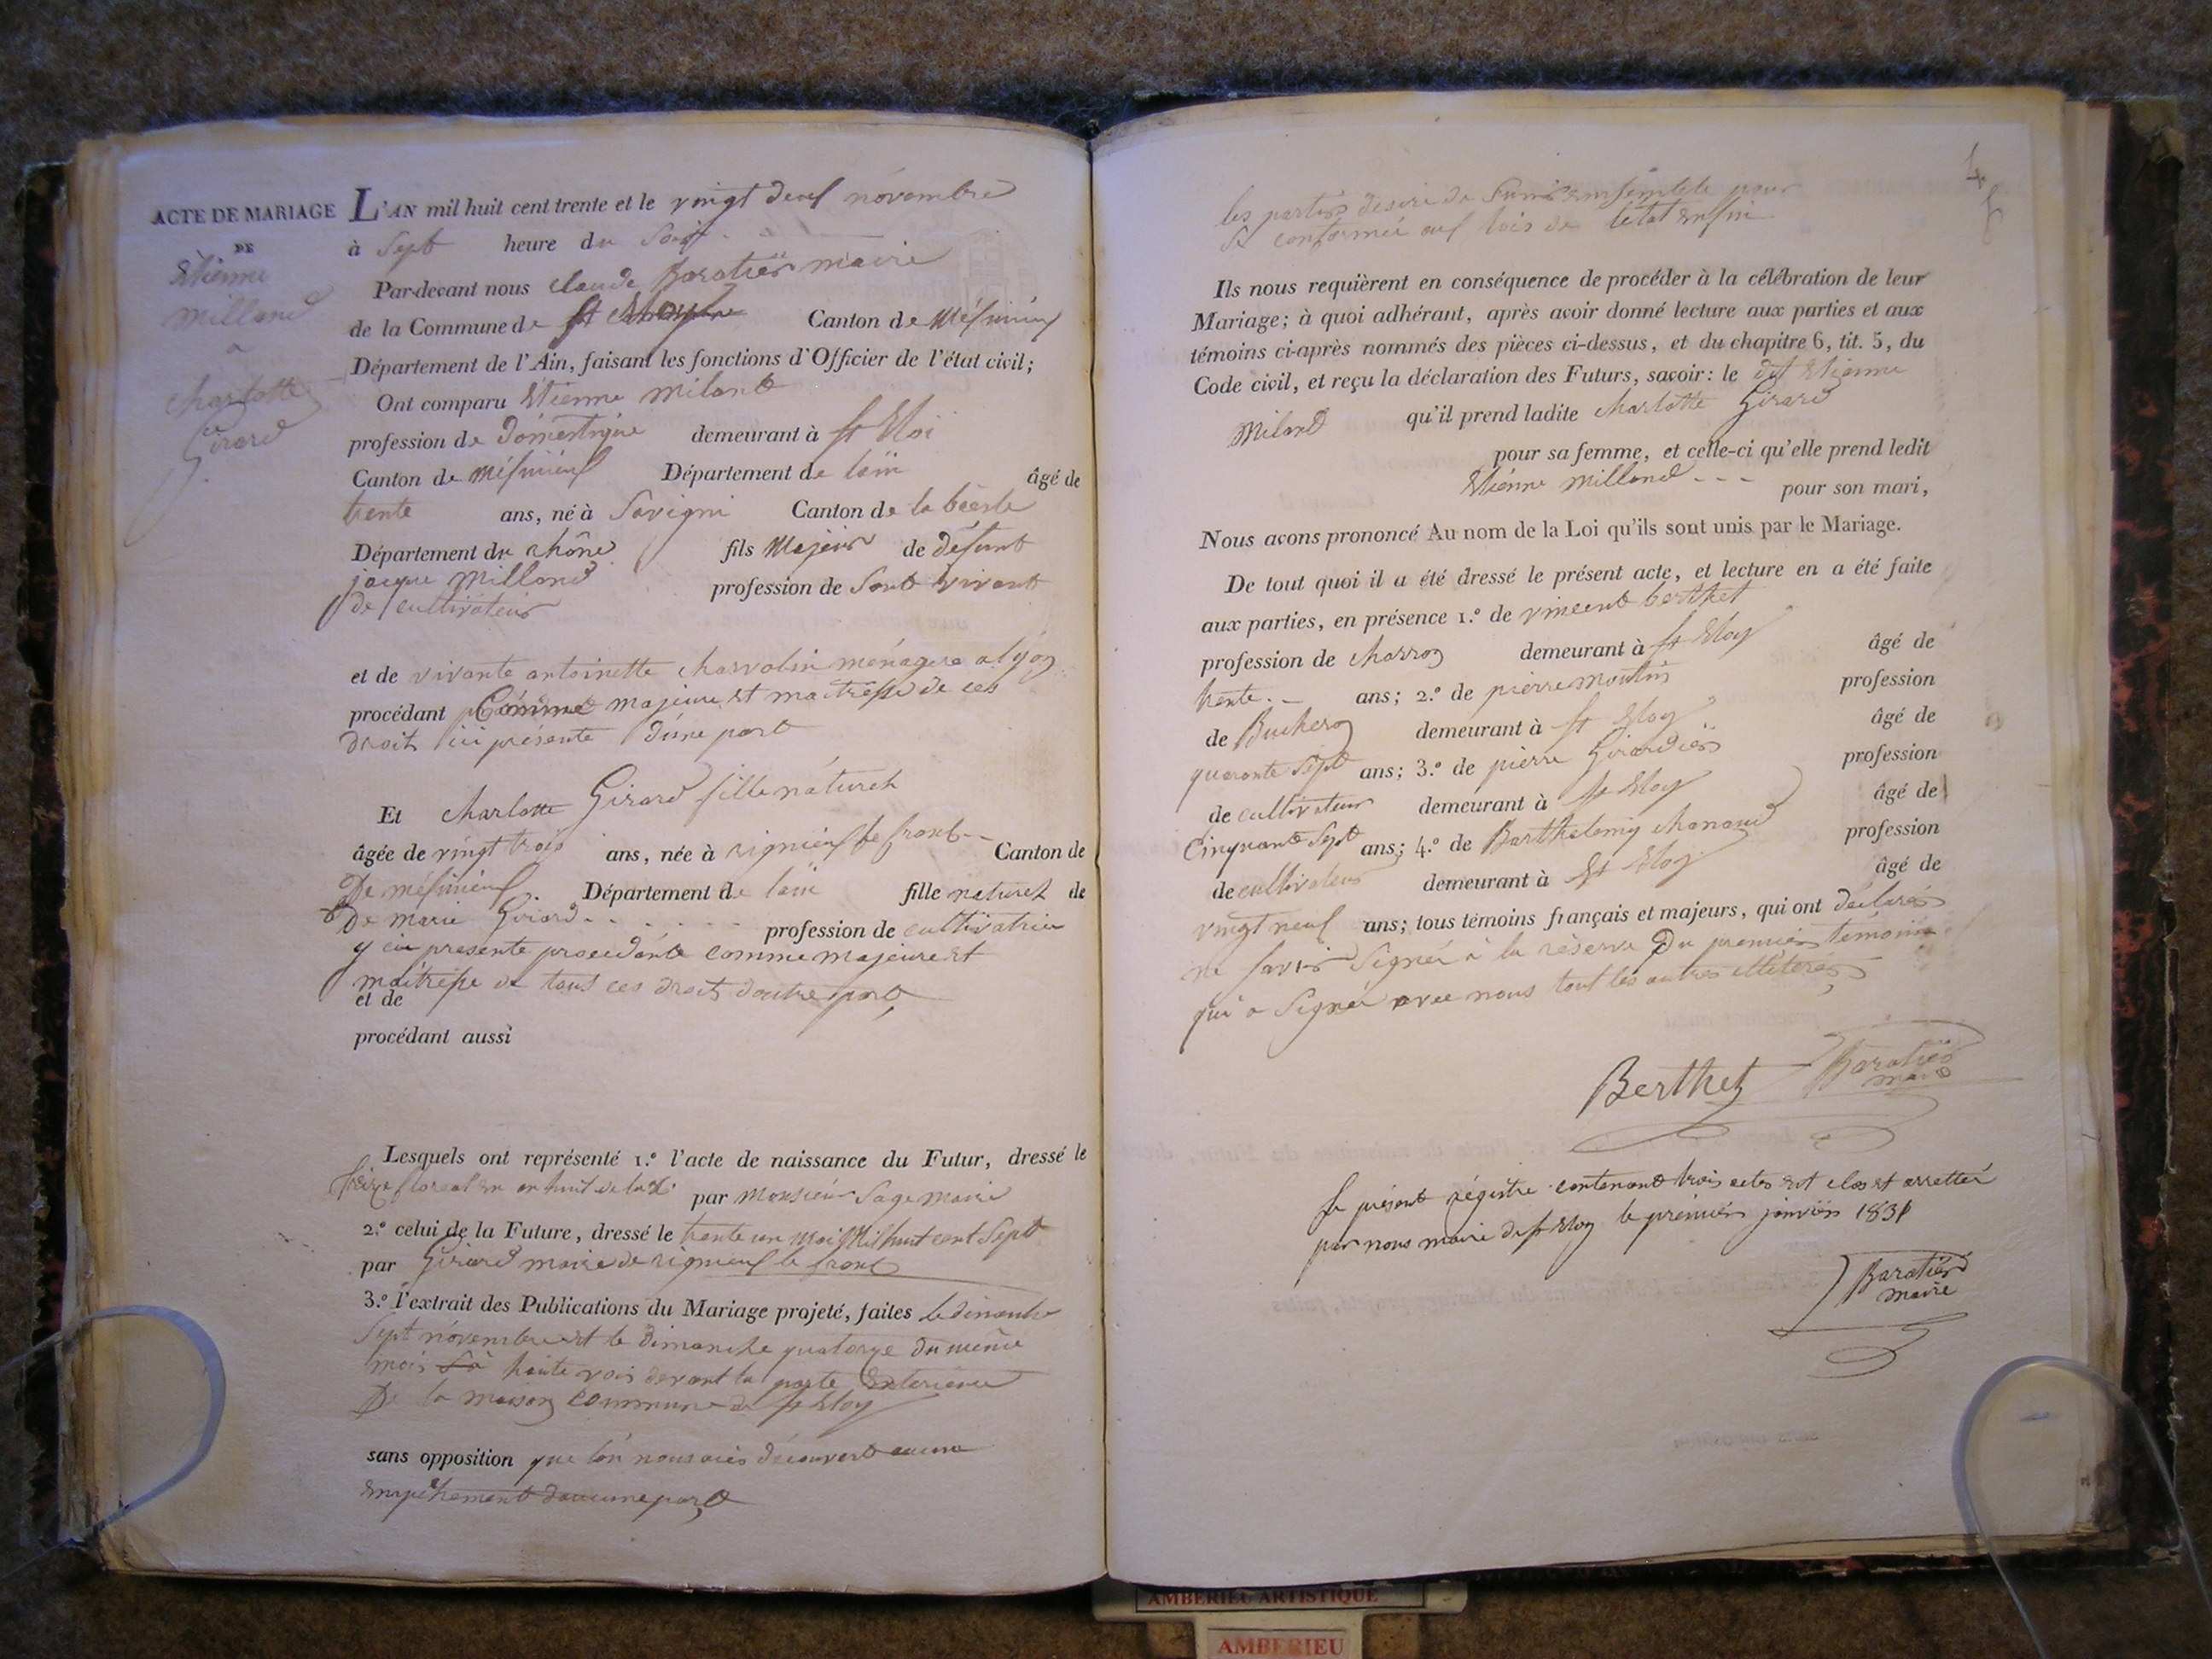 ACTE DE MARIAGE
DE
Etienne
Milland
a
Charlotte
Girard
L'AN mil huit cent trente et le vingt deux novembre
à Sept heure du Soir
Par-devant nous claude Baratier maire
de la Commune de st Canton de Mésimieux
Département de l'Ain, faisant les fonctions d'Officier de l'état civil;
Ont comparu Etienne Miland
profession de doméstique demeurant à st Eloi
Canton de mésimieux Département de lain âgé de
trente ans, né à Savigni Canton de la
Département du rhône fils Majeur de defunt
jacque Milland profession de Sont vivant
de cultivateur
et de vivante antoinette charvolin ménagere a lyon
procédant Comme majeure et maitresse de ces
droit ici présente d'une part
Et charlotte Girard fille naturel
âgée de vingt trois ans, née à rignieux le franc Canton de
De mésimieux Département de lain fille naturel de
De marie Girard profession de cultivatrice
y ci presente procedante comme majeure et
maitresse de tous ces droit d'autre part,
et de
procédant aussi
Lesquels ont représenté 1.º l'acte de naissance du Futur, dressé le
floreal en an huit de la par Monsieur Sage Maire
2.º celui de la Future, dressé le trente un Mai Mil huit cent Sept
par Girard maire de rignieux le franc
3.º l'extrait des Publications du Mariage projeté, faites le dimanche
Sept novembre et le dimanche quatorze du même
mois à haute voix devant la porte exterieure
De la maison commune de st Eloy
sans opposition que l'on nous aies découvert aucun
empêchement d'aucune part
les parties desire de Sunir ensemble pour
se conformer aux lois de l'état
Ils nous requièrent en conséquence de procéder à la célébration de leur
Mariage; à quoi adhérant, après avoir donné lecture aux parties et aux
témoins ci-après nommés des pièces ci-dessus, et du chapitre 6, tit. 5, du
Code civil, et reçu la déclaration des Futurs, savoir: le dit Etienne
Miland qu'il prend ladite charlotte Girard
pour sa femme, et celle-ci qu'elle prend ledit
Etiénne Milland - - - pour son mari,
Nous avons prononcé Au nom de la Loi qu'ils sont unis par le Mariage.
De tout quoi il a été dressé le présent acte, et lecture en a été faite
aux parties, en présence 1.º de vincent berthet
profession de charron demeurant à st Eloy âgé de
trente ans; 2.º de pierre moutin profession
de Bucheron demeurant à st Eloy âgé de
quarante Sept ans; 3.º de pierre Girardier profession
de cultivateur demeurant à st Eloy âgé de
Cinquante Sept ans; 4.º de Barthelemy chanaud profession
de cultivateur demeurant à st Eloy âgé de
vingt neuf ans; tous témoins français et majeurs, qui ont déclarés
ne Savoir Signér à la réserve Du premier témoin
qui a Signér avec nous tout les autres illéterés
Berthet
Baratier
maire
Le présent régistre contenant trois actes est clos et arretter
par nous maire de st Eloy le premier janvier 1831
Baratier
maire
AMBERIEU ARTISTIQUE
AMBERIEU